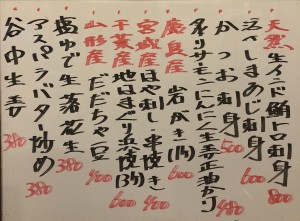 天然生インド鮪トロ刺身 800
活〆しまあじ刺身
かつお刺身 500
炙りサーモンにんにく生姜正油かり 480
鹿島産 岩がき(1ヶ) 600
宮城産 ほや刺し・串焼き 400
千葉産 地はまぐり浜焼(3ヶ) 600
山形産 だだちゃ豆 400
塩ゆで生落花生 380
アスパラバター炒め 380
谷中生姜 380